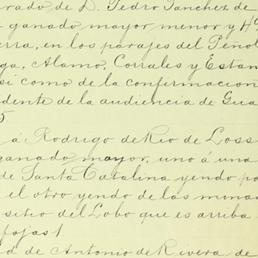 rado de D. Pedro Sanchez de
ganado mayor, menor y
rra, en los parajes del Peñol
ga, Alamo, Corrales y Estan
si como de la confirmacion
dente de la audiencia de Gua
5
á Rodrigo de Rio de Loss
ganado mayor, uno á una
de Santa Catalina yendo po
el otro yendo de las minas
sitio del Lobo que es arriba
fojas 1
d de Antonio de Rivera de